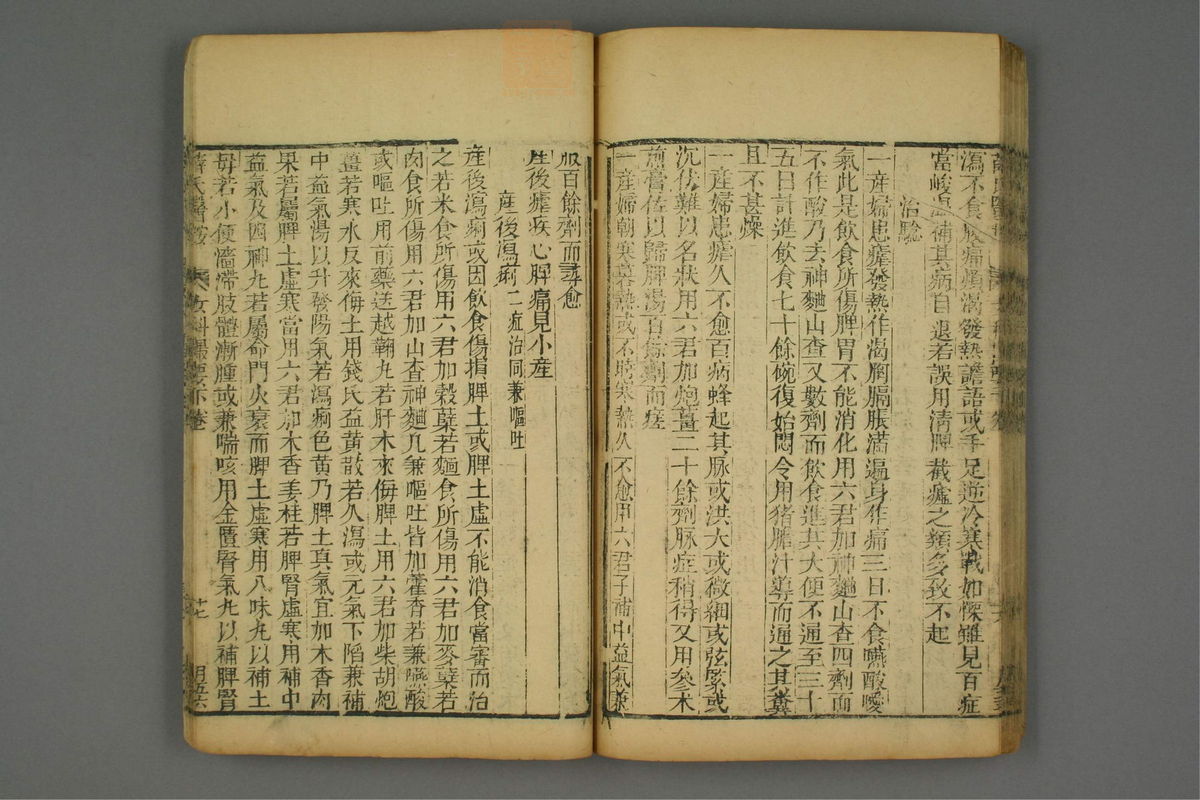 瀉不食腹痛煩渴發熱譫語或手足逆冷寒戰如慄雖見百症
當峻溫補其病自退若誤用清脾截瘧之類多致不起
治驗
一產婦患瘧發熱作渴胸膈脹滿遍身作痛三日不食嚥酸噯
氣此是飲食所傷脾胃不能消化用六君加神麯山查四劑而
不作酸乃去神麯山查又數劑而飲食進其大便不通至三十
五日計進飲食七十餘碗復始悶令用猪膽汁導而通之其糞
且不甚燥
一產婦患瘧久不愈百病蜂起其脉或洪大或微細或弦緊或
沉伏難以名狀用六君加炮薑二十餘劑脉症稍得又用參术
煎膏佐以歸脾湯百餘劑而痊
一產婦朝寒暮熱或不時寒熱久不愈用六君子補中益氣兼
服百餘劑而尋愈
產後瘧疾心脾痛見小產
產後瀉痢二症治同兼嘔吐
產後瀉痢或因飲食傷損脾土或脾土虛不能消食當審而治
之若米食所傷用六君加穀蘖若麵食所傷用六君加麥蘖若
肉食所傷用六君加山查神麯凡兼嘔吐皆加藿香若兼嚥酸
或嘔吐用前藥送越鞠丸若肝木來侮脾土用六君加柴胡炮
薑若寒水反來侮土用錢氏益黃散若久瀉或元氣下陷兼補
中益氣湯以升發陽氣若瀉痢色黃乃脾土真氣宜加木香肉
果若屬脾土虛寒當用六君加木香姜桂若脾腎虛寒用補中
益氣及四神丸若屬命門火衰而脾土虛寒用八味丸以補土
母若小便澁滯肢體漸腫或兼喘咳用金匱腎氣丸以補脾腎
薛氏醫按 女科撮要下卷 廿七